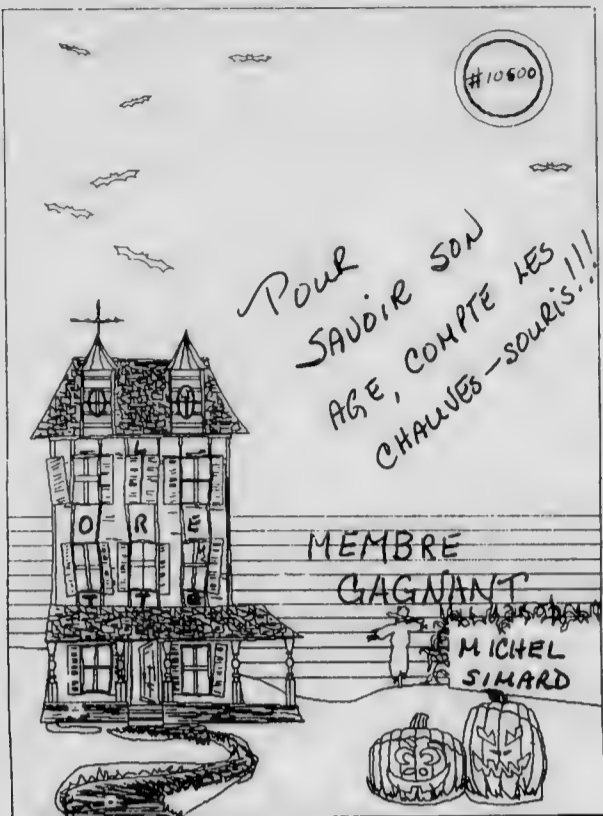 #10600
POUR
SAVOIR SON
AGE, COMPTE LES
CHAUVES-SOURIS!!!
O R E
MEMBRE
GAGNANT
MICHEL
SIMARD